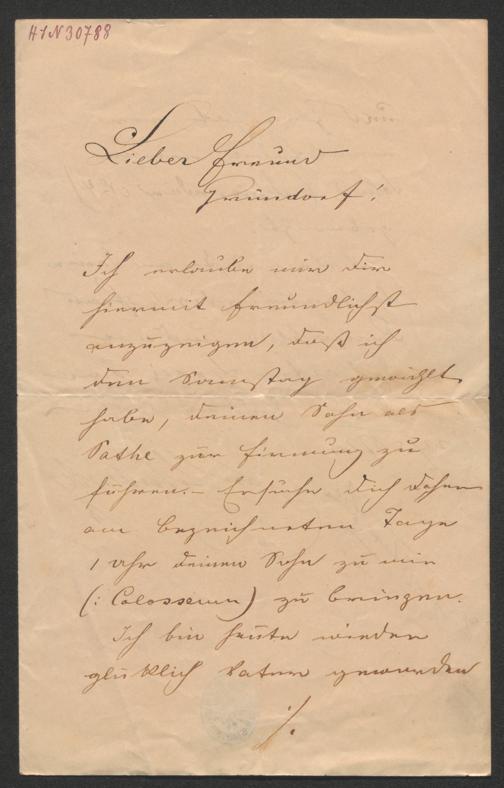 H I N 30788
Lieber Freund
Gründorf!
Ich erlaube mir Dir
hiermit freundlichst
anzuzeigen, daß ich
den Samstag gewählt
habe, deinen Sohn als
Pathe zur Firmung zu
führen.– Ersuche Dich daher
am bezeichneten Tage
1 Uhr deinen Sohn zu mir
(: Colosseum) zu bringen.
Ich bin heute wieder
glücklich Vater geworden
./.